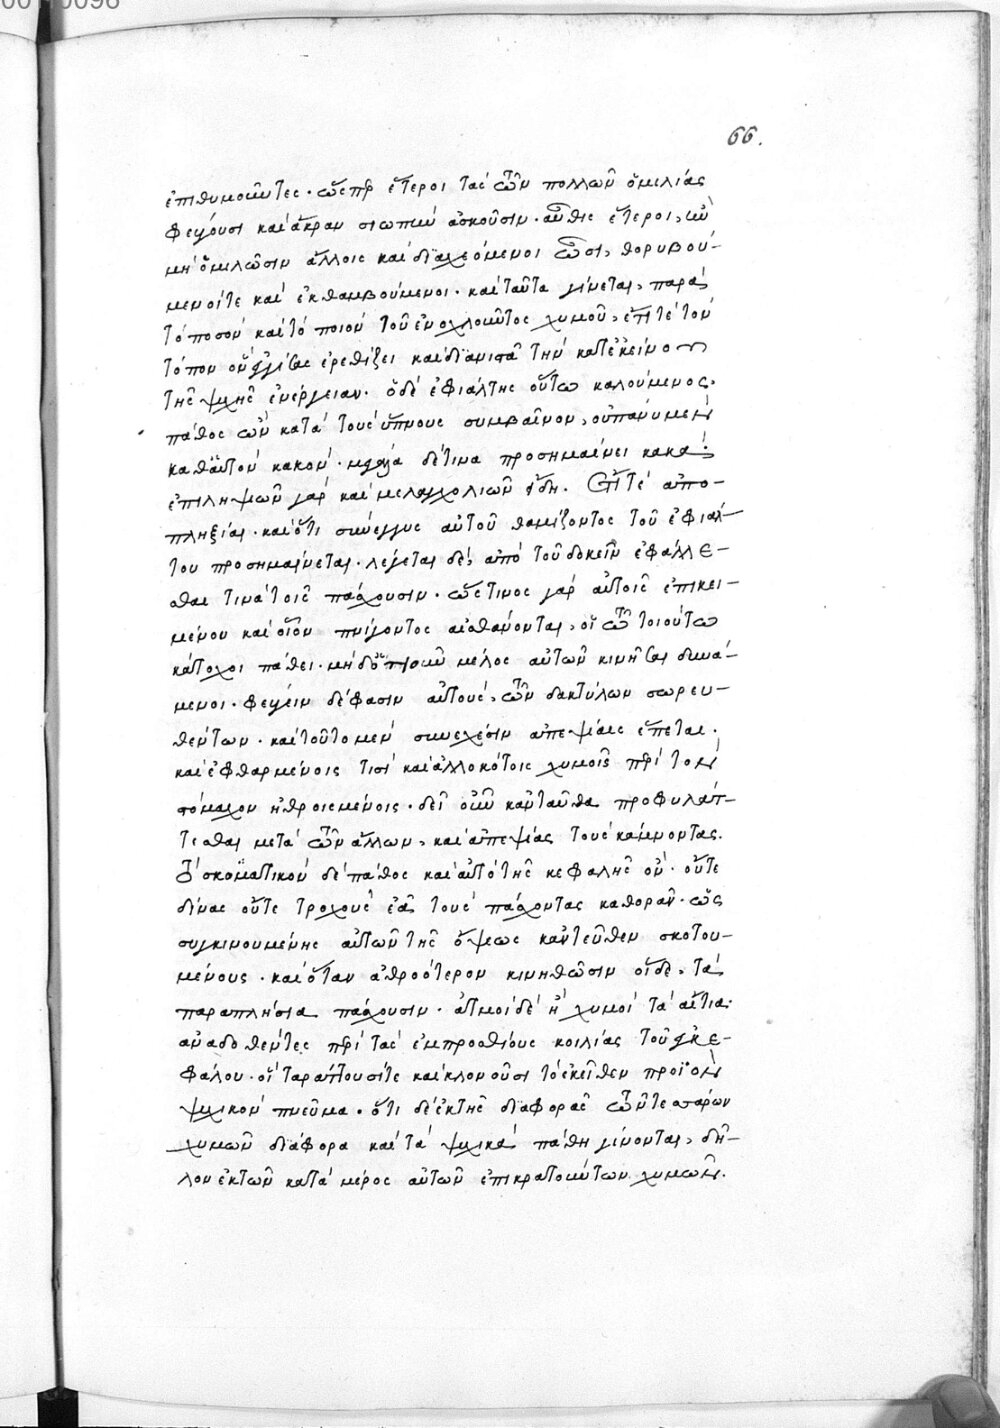 66.
ἐπιθυμοῦντες. ὥσπερ ἕτεροι τὰς τῶν πολλῶν ὁμιλίας
φεύγουσι καὶ ἄκραν σιωπὴν ἀσκοῦσιν. αὖθις ἕτεροι, κἂν
μὴ ὁμιλῶσιν ἄλλοις καὶ διαχεόμενοι ὦσι, θορυβού-
μενοί τε καὶ ἐκθαμβούμενοι. καὶ ταῦτα γίνεται, παρὰ
τὸ ποσὸν καὶ τὸ ποιὸν τοῦ ἐνοχλοῦντος χυμοῦ, ἔτι τὲ τὸν
τόπον ὃν ἐρεθίζει καὶ διανιστᾶ τὴν κατ' ἐκεῖνο
τῆς ψυχῆς ἐνέργειαν. ὁ δὲ ἐφιάλτης οὕτω καλούμενος,
πάθος ὢν κατὰ τοὺς ὕπνους συμβαῖνον, οὐ πάνυ μὲν
καθ' αὑτὸν κακόν. μεγάλα δέ τινα προσημαίνει κακά.
ἐπιληψιῶν γὰρ καὶ μελαγχολιῶν εἴδη. ἔτι τὲ ἀπο-
πληξίαι. καὶ ὅτι συνεγγυς αὐτοῦ θαμίζοντος τοῦ ἐφιάλ-
του προσημαίνεται. λέγεται δὲ, ἀπὸ τοῦ δοκεῖν ἐφάλλε-
σθαι τινὰ τοῖς πάσχουσιν. ὥς τινος γὰρ αὐτοῖς ἐπικει-
μένου καὶ οἷον πνίγοντος αἰσθάνονται, οἱ τῶ τοιούτω
κάτοχοι πάθει. μηδ' ὁποιοῦν μέλος αὐτῶν κινῆσαι δυνά-
μενοι. φεύγειν δέ φασιν αὐτοὺς, τῶν δακτύλων σωρευ-
θέντων. καὶ τοῦτο μὲν συνεχέσιν ἀπεψίαις ἕπεται.
καὶ ἐφθαρμένοις τισὶ καὶ ἀλλοκότοις χυμοῖς περὶ τὸν
στόμαχον ἠθροισμένοις. δεῖ οὖν κἀνταῦθα προφυλάτ-
τεσθαι μετὰ τῶν ἄλλων, καὶ ἀπεψίας τοὺς κάμνοντας.
Τὸ σκοτωματικὸν δὲ πάθος καὶ αὐτὸ τῆς κεφαλῆς ὂν. οὔτε
δίνας οὔτε τροχοὺς ἐᾶ τοὺς πάσχοντας καθορᾶν. ὡς
συγκινουμένης αὐτῶν τῆς ὄψεως κἀντεῦθεν σκοτου-
μένους. καὶ ὅταν ἀθροώτερον κινηθῶσιν οἵδε, τὰ
παραπλήσια πάσχουσιν. ἀτμοὶ δὲ ἢ χυμοὶ τὰ αἴτια.
ἀναδοθέντες περὶ τὰς ἐμπροσθίους κοιλίας τοῦ ἐγκε-
φάλου. οἳ ταράττουσί τε καὶ κλονοῦσι τὸ ἐκεῖθεν προϊὸν
ψυχικὸν πνεῦμα. ὅτι δὲ ἐκ τῆς διαφορᾶς τῶν τεσσάρων
χυμῶν διάφορα καὶ τὰ ψυχικὰ πάθη γίνονται, δῆ-
λον ἐκ τῶν κατὰ μέρος αὐτῶν ἐπικρατούντων χυμῶν.